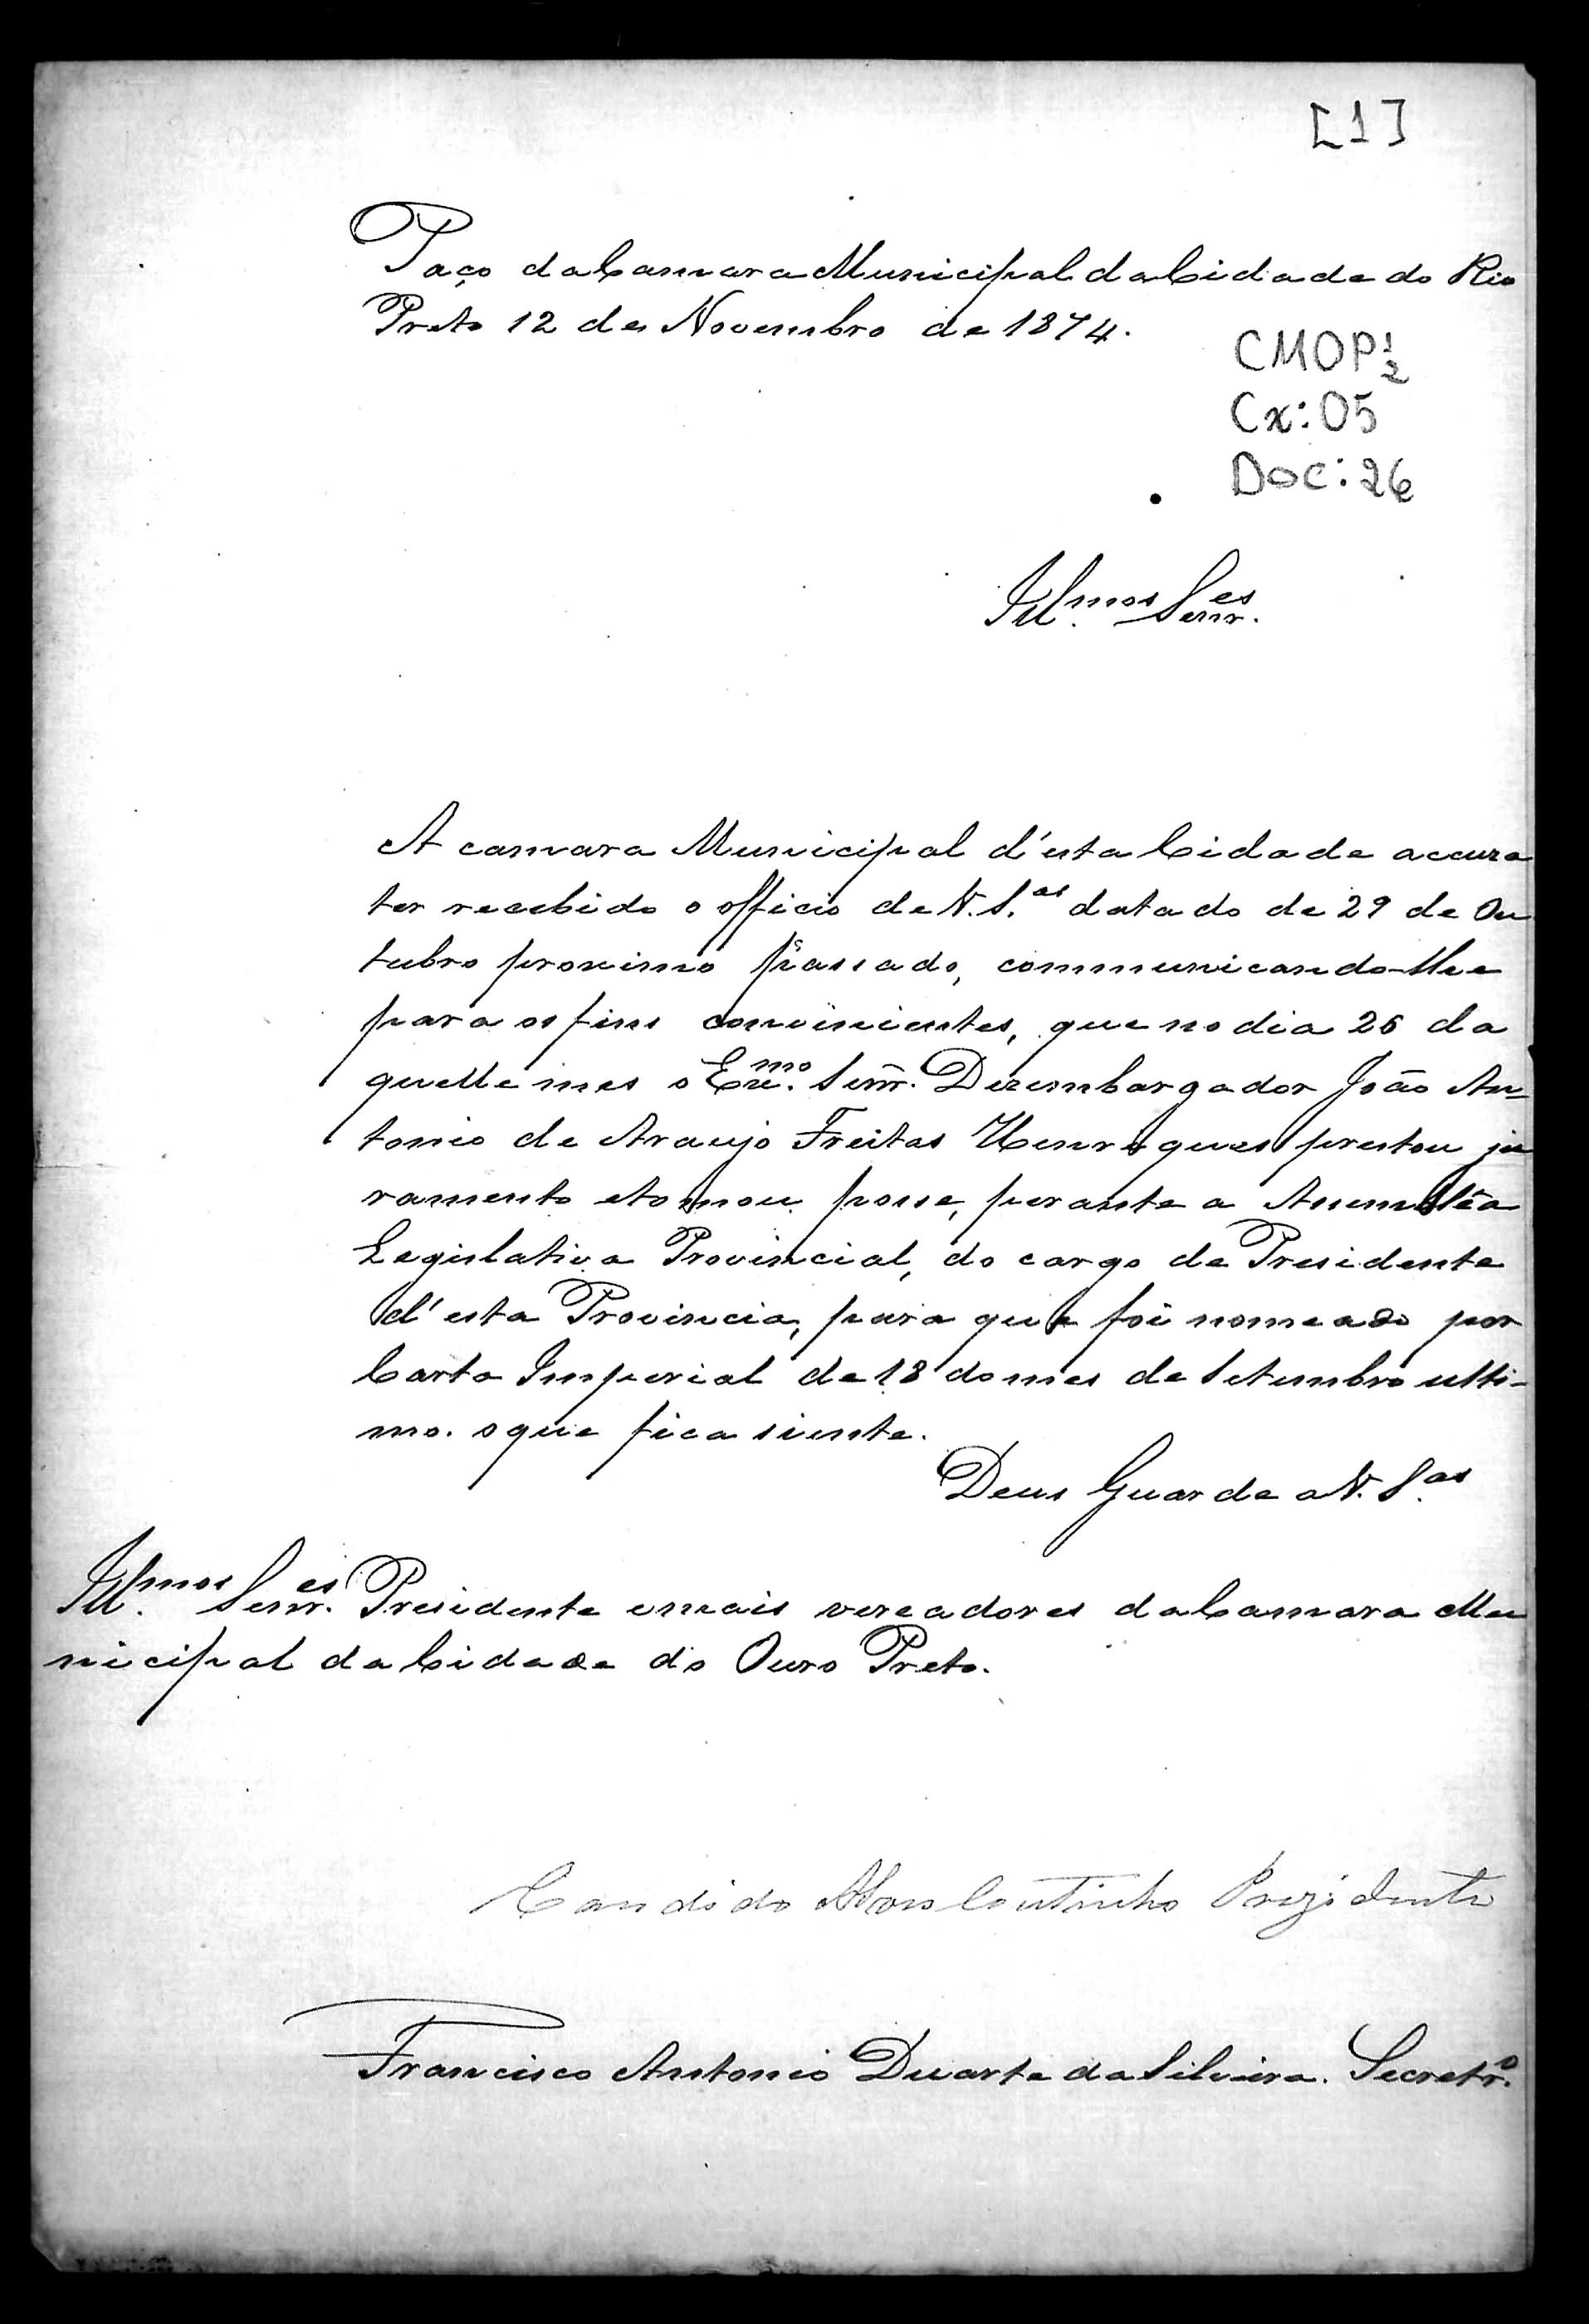 [1]
Paço da Camara Municipal da Cidade do Rio
Preto 12 de Novembro de 1874.
CMOP 1/2
Cx: 05
Doc: 26
Ill.mos Senr.es
A camara Municipal d'esta Cidade accuza
ter recebido o officio de V. S.as datado de 29 de Ou
tubro proximo passado, communicando-lhe
para os fins convinientes, que no dia 26 da
quelle mes o Ex.mo Senr. Dezembargador João An=
tonio de Araujo Freitas Henriques prestou ju
ramento e tomou posse, perante a Assembléa
Legislativa Provincial, do cargo de Presidente
d'esta Provincia, para que foi nomeado por
Carta Imperial de 18 do mes de Setembro ulti-
mo. o que fica siente.
Deus Guarde a V. S.as
Ill.mos Senr.es Presidente e mais vereadores da Camara Mu
nicipal da Cidade do Ouro Preto.
Candido Coutinho Prezidente
Francisco Antonio Duarte da Silveira. Secretr.o